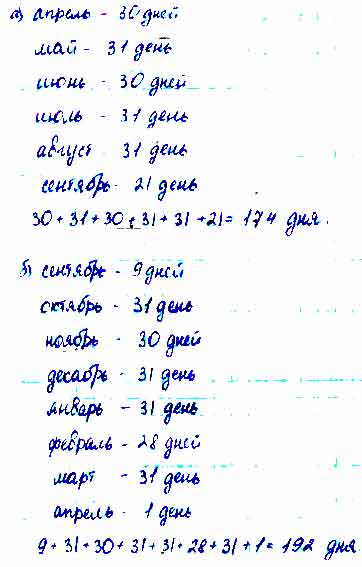 а) апрель - 30 дней
май - 31 день
июнь - 30 дней
июль - 31 день
август - 31 день
сентябрь - 21 день
30 + 31 + 30 + 31 + 31 + 21 = 174 дня.
б) сентябрь - 9 дней
октябрь - 31 день
ноябрь - 30 дней
декабрь - 31 день
январь - 31 день
февраль - 28 дней
март - 31 день
апрель - 1 день
9 + 31 + 30 + 31 + 31 + 28 + 31 + 1 = 192 дня.